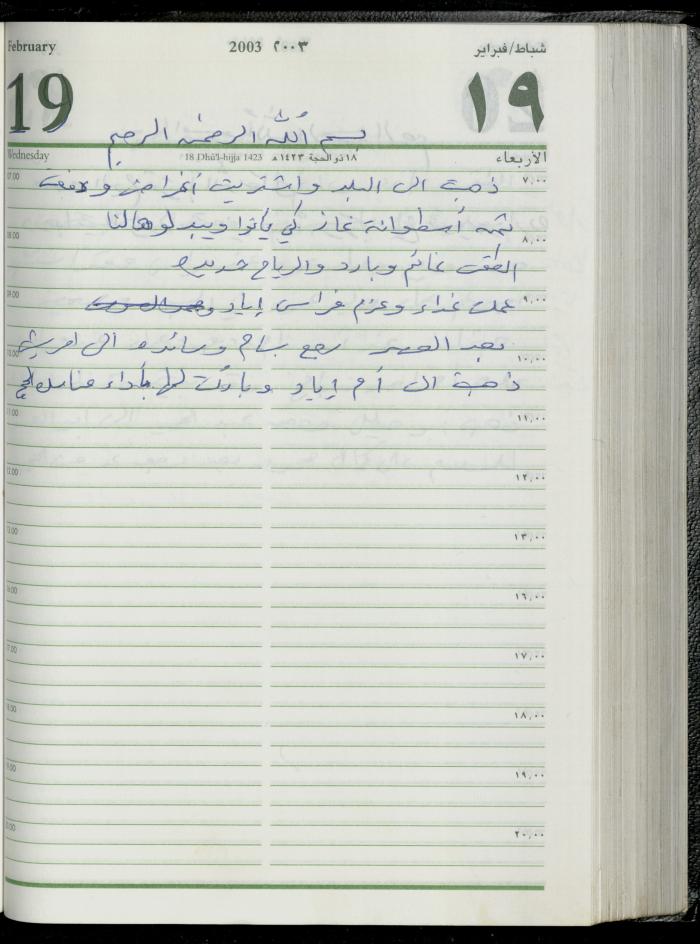 February 2003 ٢٠٠٣ شباط/فبراير
19 ١٩
بسم الله الرحمن الرحيم
Wednesday 18 Dhú'l-hijja 1423 ١٨ ذو الحجة ١٤٢٣ هـ الأربعاء
07.00 ذهبت الى البلد واشتريت أغراض ودفعت ٧,٠٠
ثمن أسطوانة غاز كي يأتوا ويبدلوها لنا
08.00 ٨,٠٠
الطقس غائم وبارد والرياح شديدة
09.00 عملت غداء وعزم فراس إياد ٩,٠٠
بعد العصر رجع سالم وسائده الى
10.00 ١٠,٠٠
ذهبت الى أم إياد وباركت لها بأداء مناسك الحج
11.00 ١١,٠٠
12.00 ١٢,٠٠
13.00 ١٣,٠٠
16.00 ١٦,٠٠
17.00 ١٧,٠٠
18.00 ١٨,٠٠
19.00 ١٩,٠٠
20.00 ٢٠,٠٠